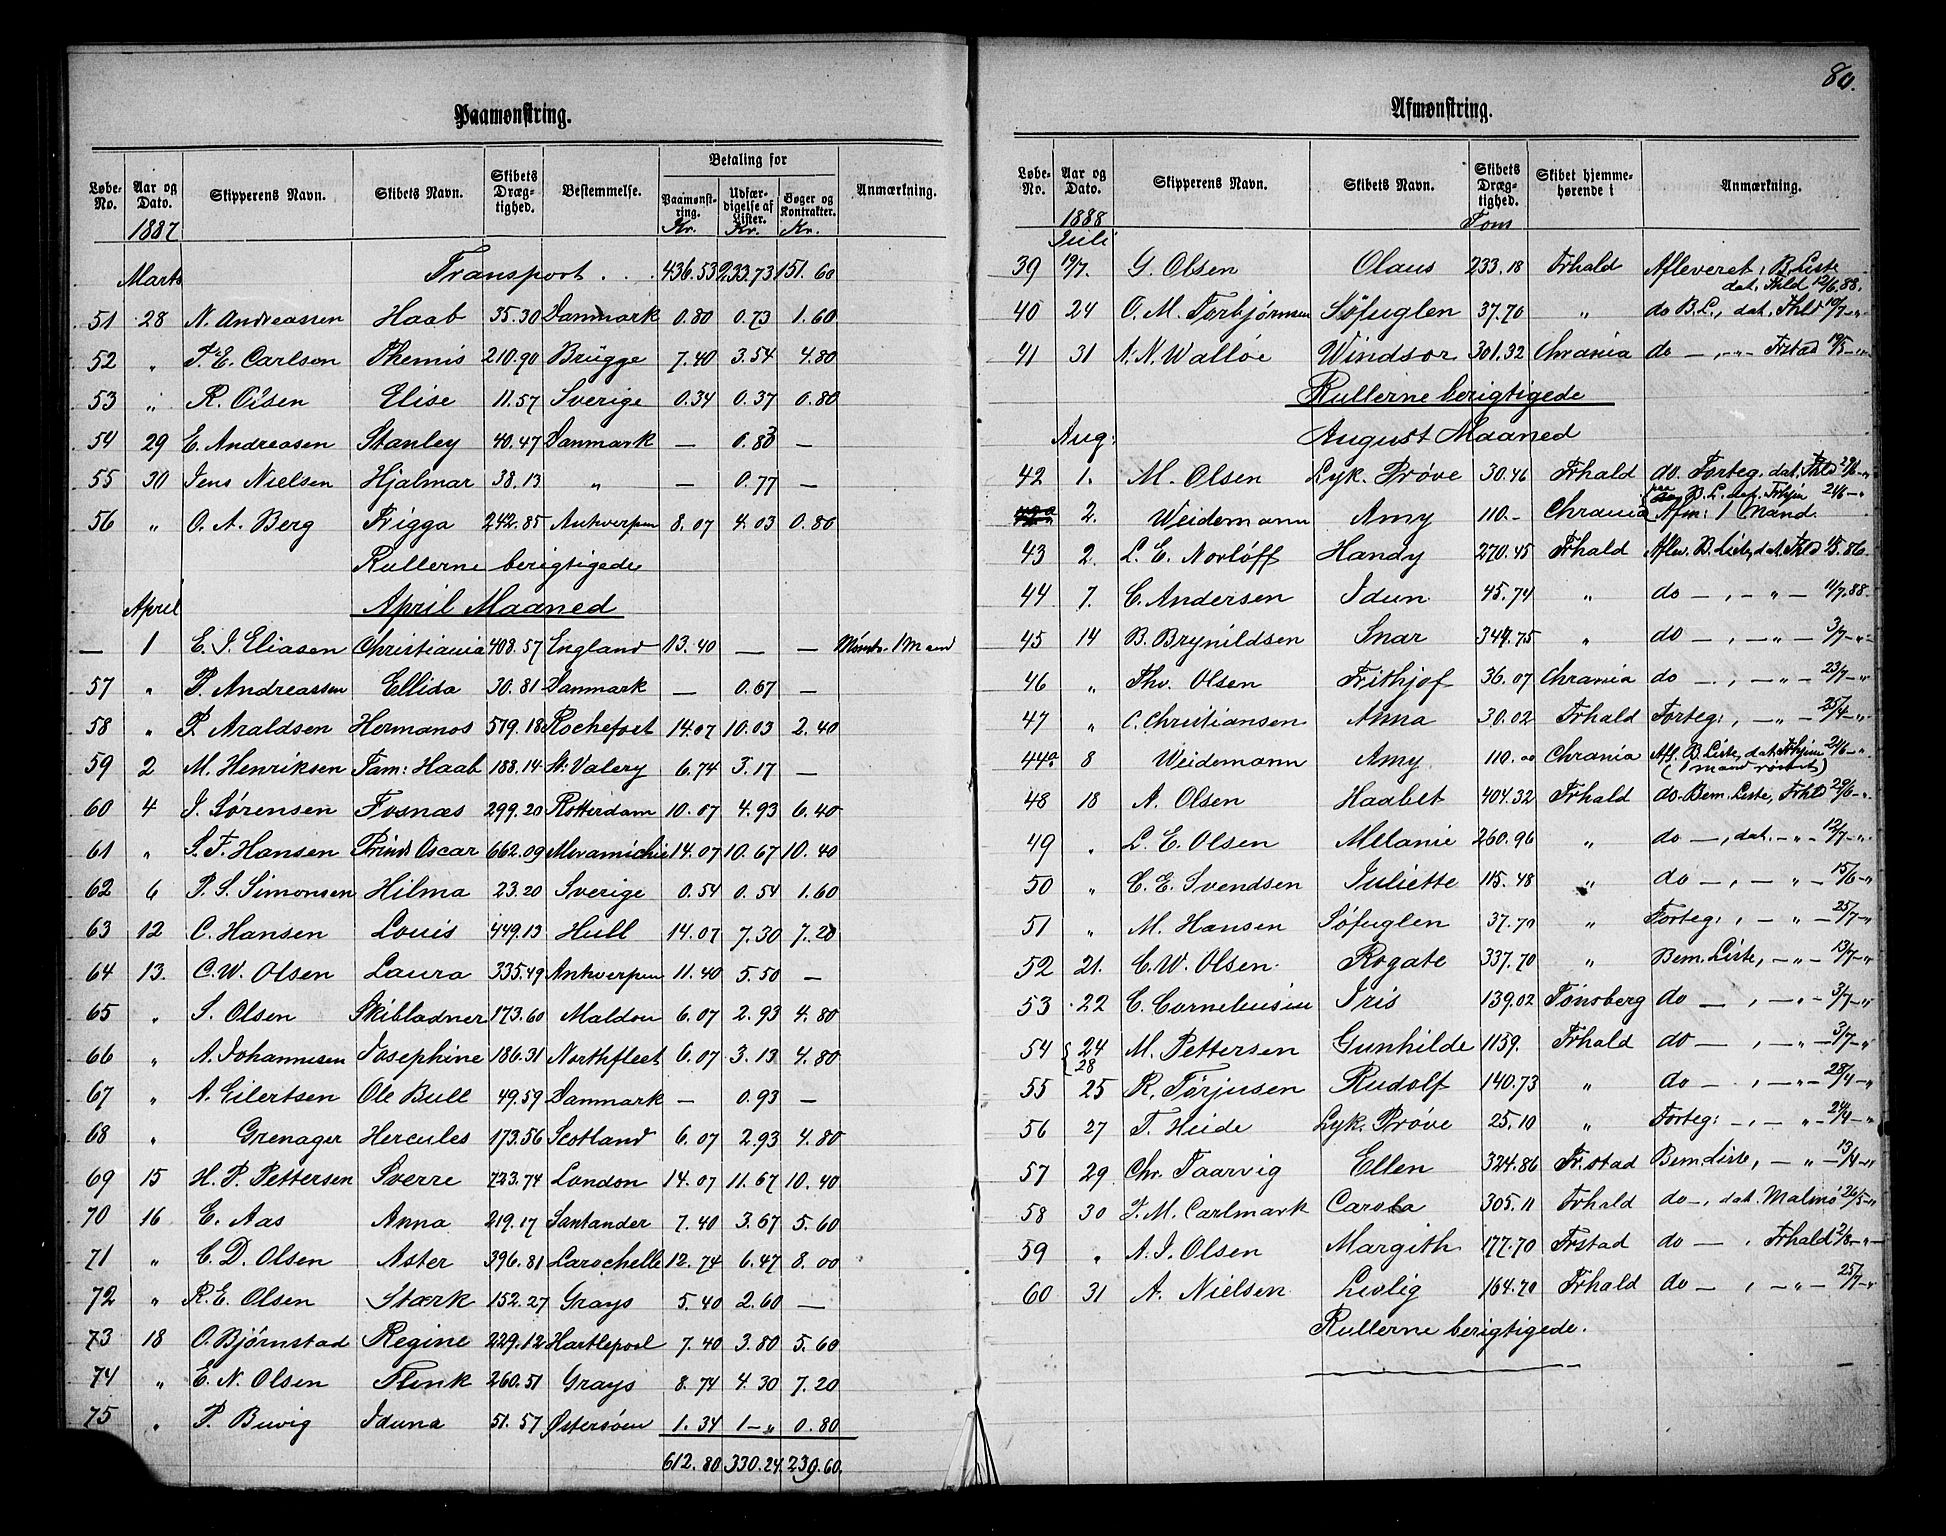 Paamønstring.
Løbe-No. | Aar og Dato. | Skipperens Navn. | Skibets Navn. | Skibets Dræg-tighed. | Bestemmelse. | Betaling for | Anmærkning.
Paamønst-ring. | Udfær-digelse af Lister. | Bøger og Kontrakter.
1887 | Kr. | Kr. | Kr.
Marts | Transport . . . | 436.53 | 233.73 | 151.60
51 | 28 | N. Andreassen | Haab | 35.30 | Danmark | 0.80 | 0.73 | 1.60
52 | " | F. E. Carlson | Themis | 210.90 | Brügge | 7.40 | 3.54 | 4.80
53 | " | R. Olsen | Elise | 11.57 | Sverige | 0.34 | 0.37 | 0.80
54 | 29 | E. Andreasen | Stanley | 40.47 | Danmark | — | 0.83 | —
55 | 30 | Jens Nielsen | Hjalmar | 38.13 | " | — | 0.77 | —
56 | " | O. A. Berg | Frigga | 242.85 | Antwerpen | 8.07 | 4.03 | 0.80
Rullerne berigtigede
April | April Maaned
— | 1 | E. J. Eliasen | Christiania | 408.57 | England | 13.40 | — | — | Mønstr. 1 Mand
57 | " | P. Andreassen | Ellida | 30.81 | Danmark | — | 0.67 | —
58 | " | P. Araldsen | Hermanos | 579.18 | Rochefort | 14.07 | 10.03 | 2.40
59 | 2 | M. Henriksen | Fam: Haab | 188.14 | St. Valery | 6.74 | 3.17 | —
60 | 4 | J. Sørensen | Fosnæs | 299.20 | Rotterdam | 10.07 | 4.93 | 6.40
61 | " | S. F. Hansen | Prinds Oscar | 662.09 | Meramichie | 14.07 | 10.67 | 10.40
62 | 6 | P. S. Simonsen | Hilma | 23.20 | Sverige | 0.54 | 0.54 | 1.60
63 | 12 | C. Hansen | Louis | 449.13 | Hull | 14.07 | 7.30 | 7.20
64 | 13. | C. W. Olsen | Laura | 335.49 | Antwerpen | 11.40 | 5.50 | —
65 | " | S. Olsen | Skibladner | 173.60 | Maldon | 6.07 | 2.93 | 4.80
66 | " | A. Johannesen | Josephine | 186.31 | Northfleet | 6.07 | 3.13 | 4.80
67 | " | A. Eilertsen | Ole Bull | 49.59 | Danmark | — | 0.93 | —
68 | " | Grenager | Hercules | 173.56 | Scotland | 6.07 | 2.93 | 4.80
69 | 15 | H. P. Pettersen | Sverre | 723.74 | London | 14.07 | 11.67 | 10.40
70 | 16 | E. Aas | Anna | 219.17 | Santander | 7.40 | 3.67 | 5.60
71 | " | C. D. Olsen | Aster | 396.81 | Larochelle | 12.74 | 6.47 | 8.00
72 | " | R. E. Olsen | Stærk | 152.27 | Grays | 5.40 | 2.60 | —
73 | 18 | O. Bjørnstad | Regine | 229.12 | Hartlepool | 7.40 | 3.80 | 5.60
74 | " | E. N. Olsen | Flink | 260.51 | Grays | 8.74 | 4.30 | 7.20
75 | " | P. Buvig | Iduna | 51.57 | Østersøen | 1.34 | 1-" | 0.80
612.80 | 330.24 | 239.60.
80.
Afmønstring.
Løbe-No. | Aar og Dato. | Skipperens Navn. | Skibets Navn. | Skibets Dræg-tighed. | Skibet hjemme-hørende i | Anmærkning.
1888 | Tons
Juli
39 | 19/7. | G. Olsen | Olaus | 233.18 | Frhald | Afleveret: B. Liste dat. Fhld 12/6.88.
40 | 24 | O. M. Torbjørnsen | Søfuglen | 37.70 | " | do B.L., dat. Fhld 19/7-"
41 | 31 | A. N. Walløe | Windsor | 301.32 | Chrania | do —,"- Frstad 19/5-"
Rullerne berigtigede
Aug: | August Maaned
42 | 1. | M. Olsen | Lyk. Prøve | 30.46 | Frhald | do. Forteg. dat. Fhld 29/6-"
2. | Weidemann | Amy | 110.- | Chrania | paa B.L. dat. Frhjm 21/6-" Afm: 1 Mand.
43 | 2. | L. E. Norløff | Handy | 270.45 | Frhald
44 | 7. | C. Andersen | Idun | 45.74 | " | do —,—"— 11/7.88.
45 | 14 | B. Brynildsen | Snar | 347.75 | " | do —,—"— 3/7-"
46 | " | Thv. Olsen | Frithjof | 36.07 | Chrania | do —,—"— 23/7-"
47 | " | C. Christiansen | Alma | 30.02 | Frhald | Forteg: ,—"— 25/4-"
44a | 8 | Weidemann | Amy | 110.00 | Chrania | Afl. B. Liste, dat. Frhjm 21/6-" (1 mand rømt)
48 | 18 | A. Olsen | Haabet | 404.32 | Frhald | do. Bem. Liste, Frhld 29/6-"
49 | " | L. E. Olsen | Melanie | 260.96 | " | do —, dat. —"— 12/7-"
50 | " | C. E. Svendsen | Juliette | 115.48 | " | do —,—"— 15/6-"
51 | " | M. Hansen | Søfuglen | 37.70 | " | Forteg: ,—"— 25/7-"
52 | 21. | C. W. Olsen | Rogate | 337.70 | " | Bem. Liste, —"— 13/7-"
53 | 22 | C. Corneliussen | Iris | 139.02 | Tønsberg | do —,—"— 3/7-"
54 | 24 28 | M. Pettersen | Gunhilde | 1159. | Frhald | do —,—"— 3/7-"
55 | 25 | R. Torjusen | Rudolf | 140.73 | " | do —,—"— 28/4-"
56 | 27 | F. Heide | Lyk. Prøve | 25.10 | " | Forteg: —,—"— 24/4-"
57 | 29 | Chr. Taarvig | Ellen | 324.86 | Fr.stad | Bem. Liste, —"— 13/4-"
58 | 30 | F. M. Carlmark | Carola | 305.11 | Frhald | do —, dat. Malmö 26/5-"
59 | " | A. J. Olsen | Margith | 177.70 | Frstad | do — , Frhald 2/8-"-
60 | 31 | A. Nielsen | Livlig | 164.70 | Frhald | do — , —"— 25/7-"
Rullerne berigtigede.